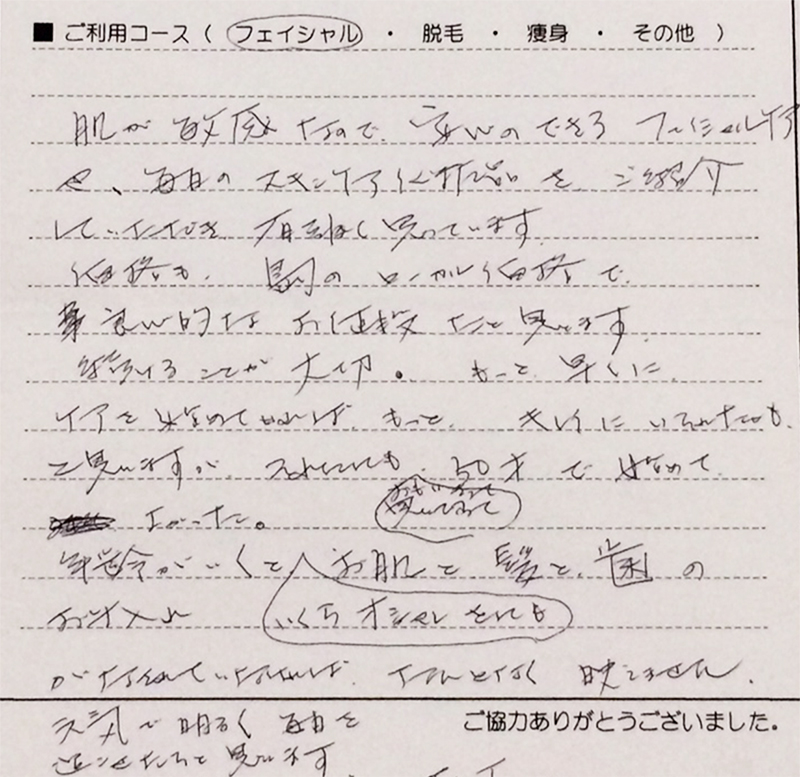 ■ ご利用コース（ フェイシャル ・ 脱毛 ・ 痩身 ・ その他 ）
肌が敏感なので、安心のできるフェイシャルケア
と、毎日のスキンケア化粧品をご紹介
していただき有難く思っています。
価格も、 のローカル価格で、
良心的なお値段だと思います。
継続することが大切。 もっと早くに、
ケアを始めていれば、もっと、キレイにいられたかも、
と思いますが、それにしても、50才で始めて、
よかった。
年齢がいくと、お肌と髪と、歯の
お手入れ
いくらオシャレをしても
がなされていなければ、なんとなく映えません。
元気で明るく毎日を
過ごせたらと思います
ご協力ありがとうございました。